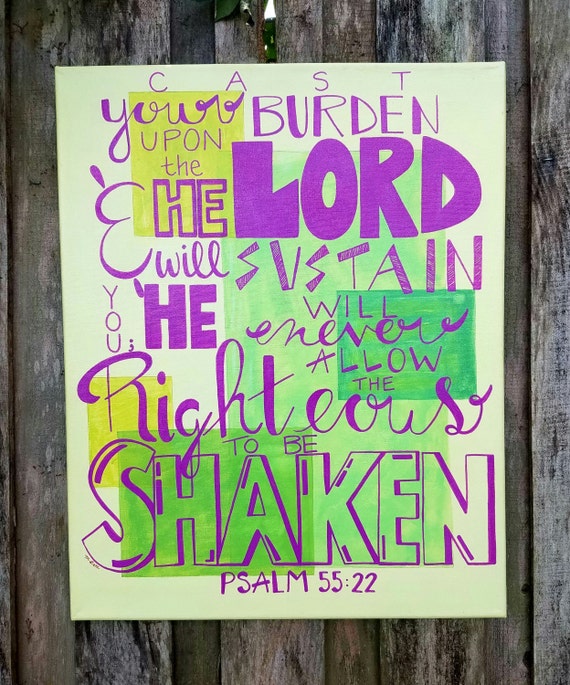 CAST
your BURDEN
UPON
the LORD
& HE
will SUSTAIN
YOU; HE WILL
never
ALLOW
THE
Righteous
TO BE
SHAKEN
PSALM 55:22